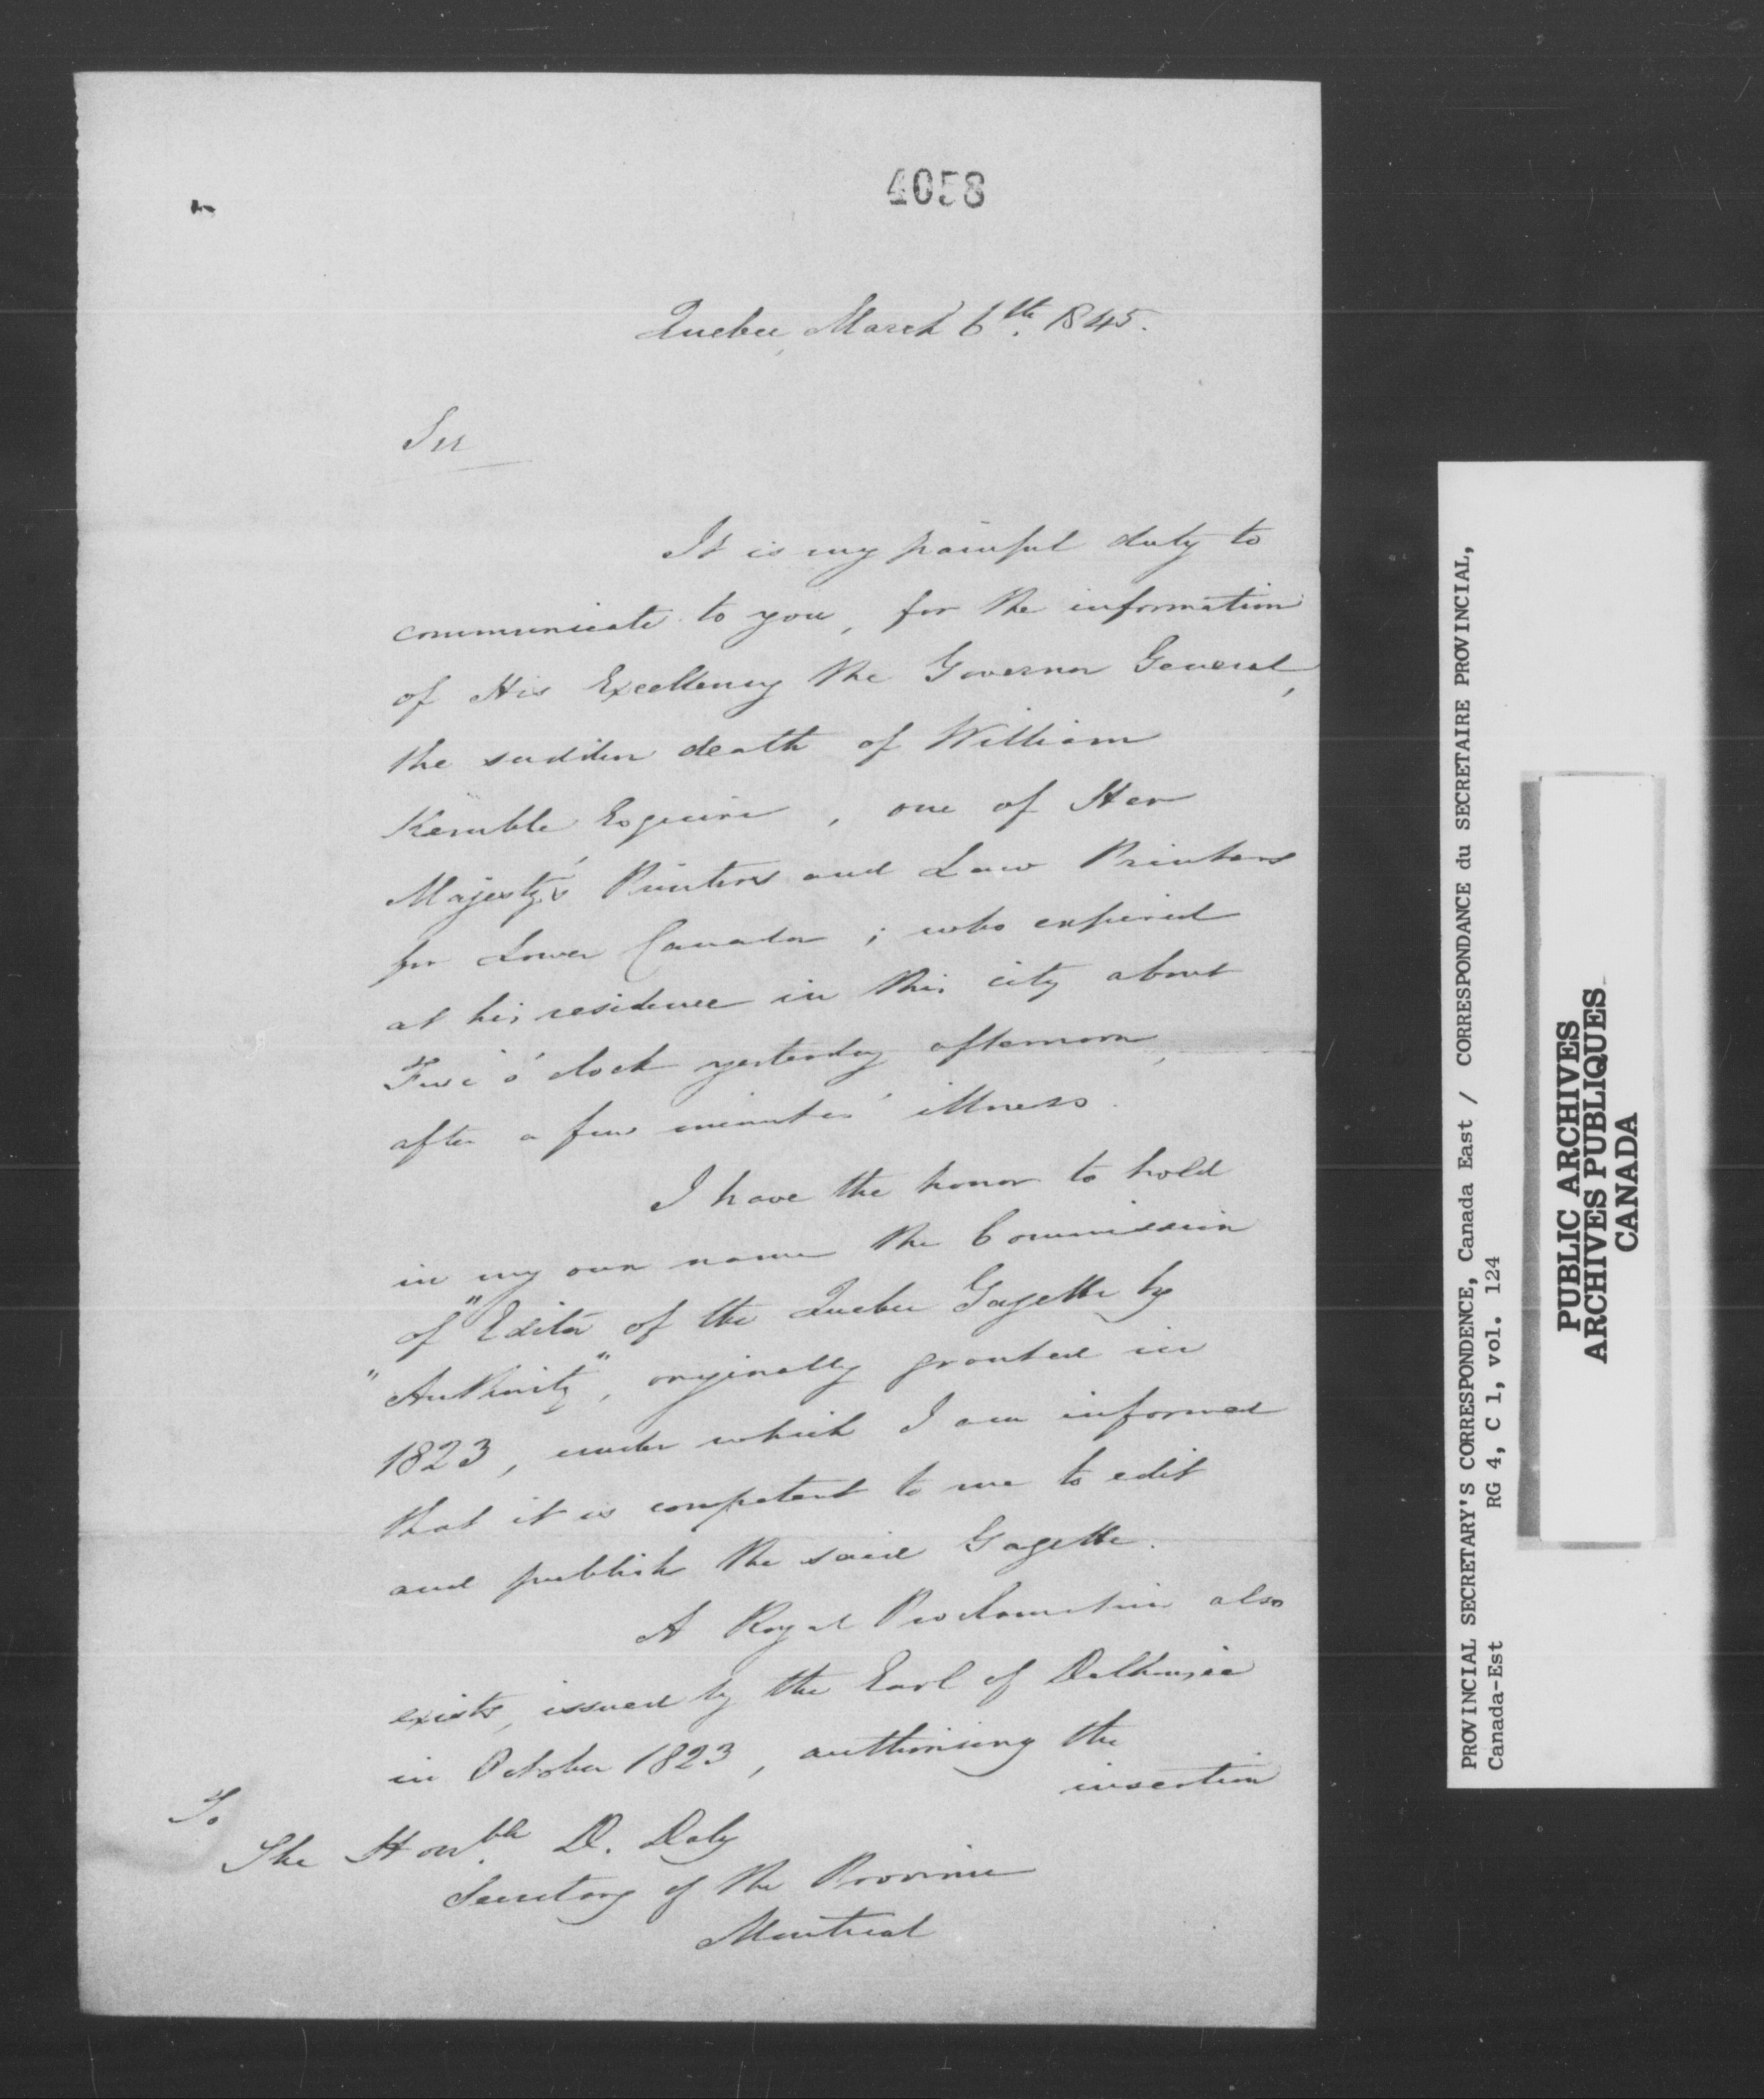 4058
Quebec, March 6th. 1845.
Sir
It is my painful duty to
communicate to you, for the information
of His Excellency the Governor General,
the sudden death of William
Kemble Esquire, one of Her
Majesty's Printers and Law Printers
for Lower Canada; who expired
at his residence in this city about
Five o'clock yesterday afternoon,
after a few minutes' illness.
I have the honor to hold
in my own name the Commission
of "Editor of the Quebec Gazette by
"Authority", originally granted in
1823, under which I am informed
that it is competent to me to edit
and publish the said Gazette.
A Royal Proclamation also
exists, issued by the Earl of Dalhousie
in October 1823, authorising the
insertion
To
The Honble D. Daly
Secretary of the Province
Montreal
PROVINCIAL SECRETARY'S CORRESPONDENCE, Canada East / CORRESPONDANCE du SECRETAIRE PROVINCIAL,
Canada-Est RG 4, C 1, vol. 124
PUBLIC ARCHIVES
ARCHIVES PUBLIQUES
CANADA